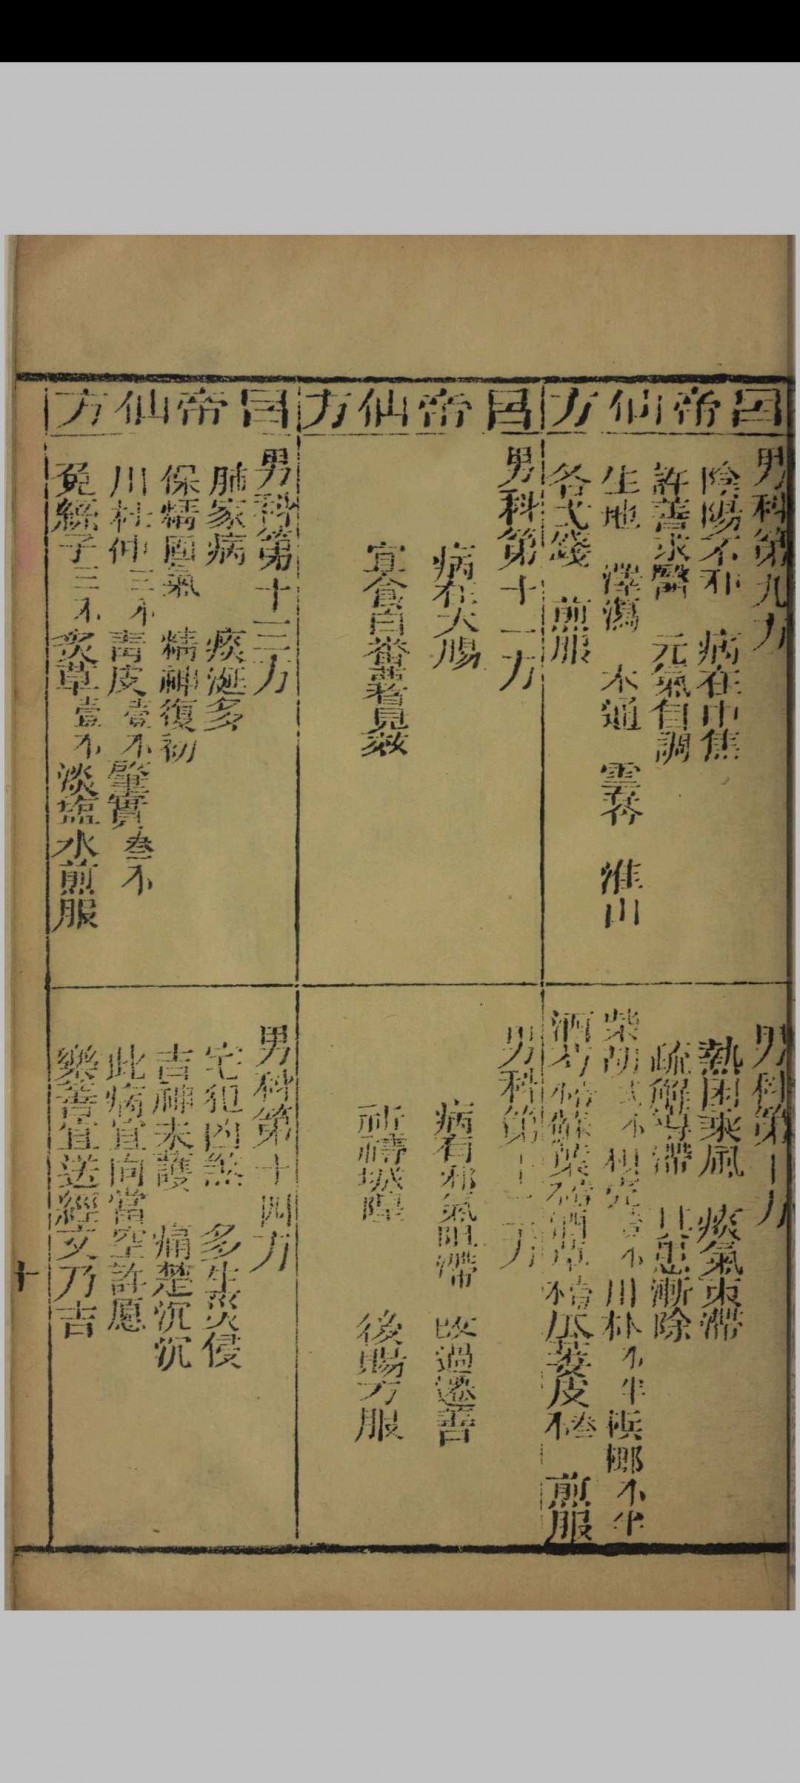 呂帝仙方
男科第九方
陰陽不和　病在中焦
許善求醫　元氣自調
生地　澤瀉　木通　雲苓　淮山
各弍錢　煎服
男科第十方
熱困乘風　痰氣束滯
疏解導滯　其患漸除
柴胡　枳壳　川朴　不半　檳榔　不半
酒芍　蘇葉　酒草　瓜蔞皮　煎服
呂帝仙方
男科第十一方
病在大腸
宜食白番薯見效
男科第十二方
病有邪氣阻滯　改過遷善
祈禱城隍　後賜方服
呂帝仙方
男科第十三方
肺家病　痰涎多
保精固氣　精神復初
川杜仲三不　青皮壹不　肇實叁不
兔絲子三不　炙草壹不　淡塩水煎服
男科第十四方
宅犯凶煞　多生災侵
吉神未護　痛楚沉沉
此病宜向當空許愿
樂善宜送經文乃吉
十